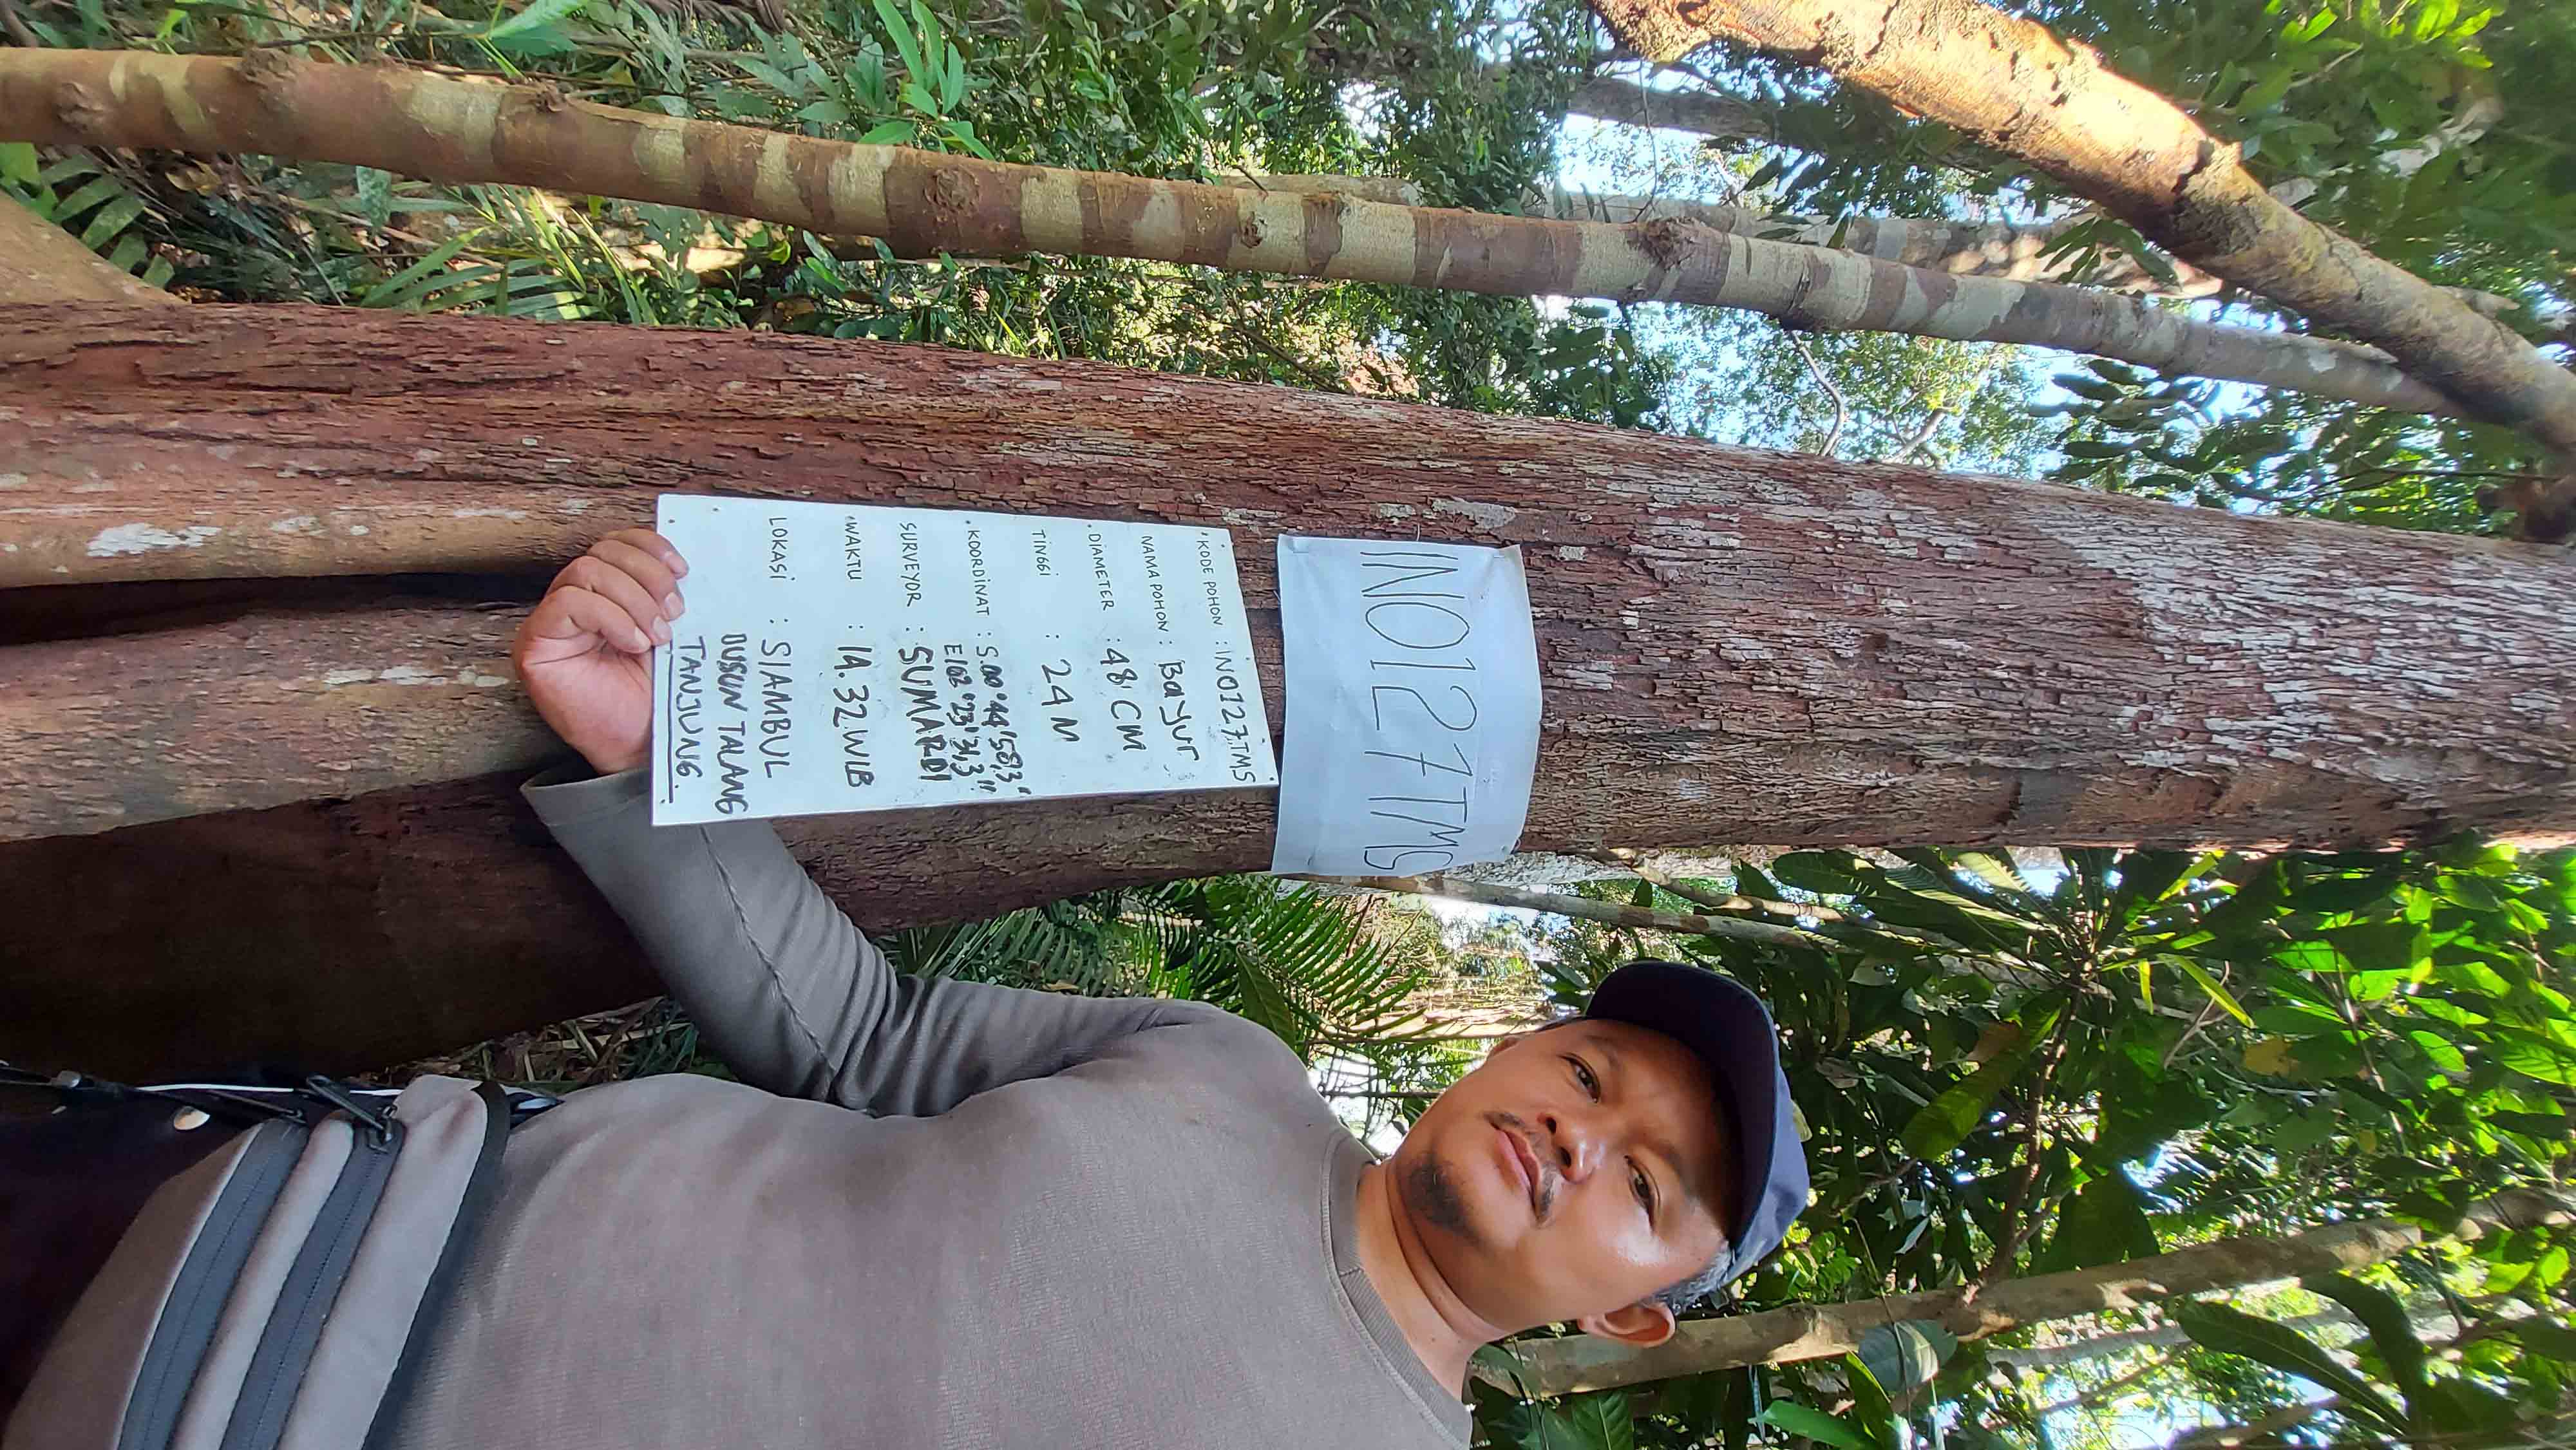 INO127TMS
KODE POHON : INO127.TMS
NAMA POHON : Bayur
DIAMETER : 48 CM
TINGGI : 24 M
KOORDINAT : S.00°44'58,3"
E103°23'31,3"
SURVEYOR : SUMARDI
WAKTU : 14.32 WIB
LOKASI : SIAMBUL
DUSUN TALANG
TANJUNG.